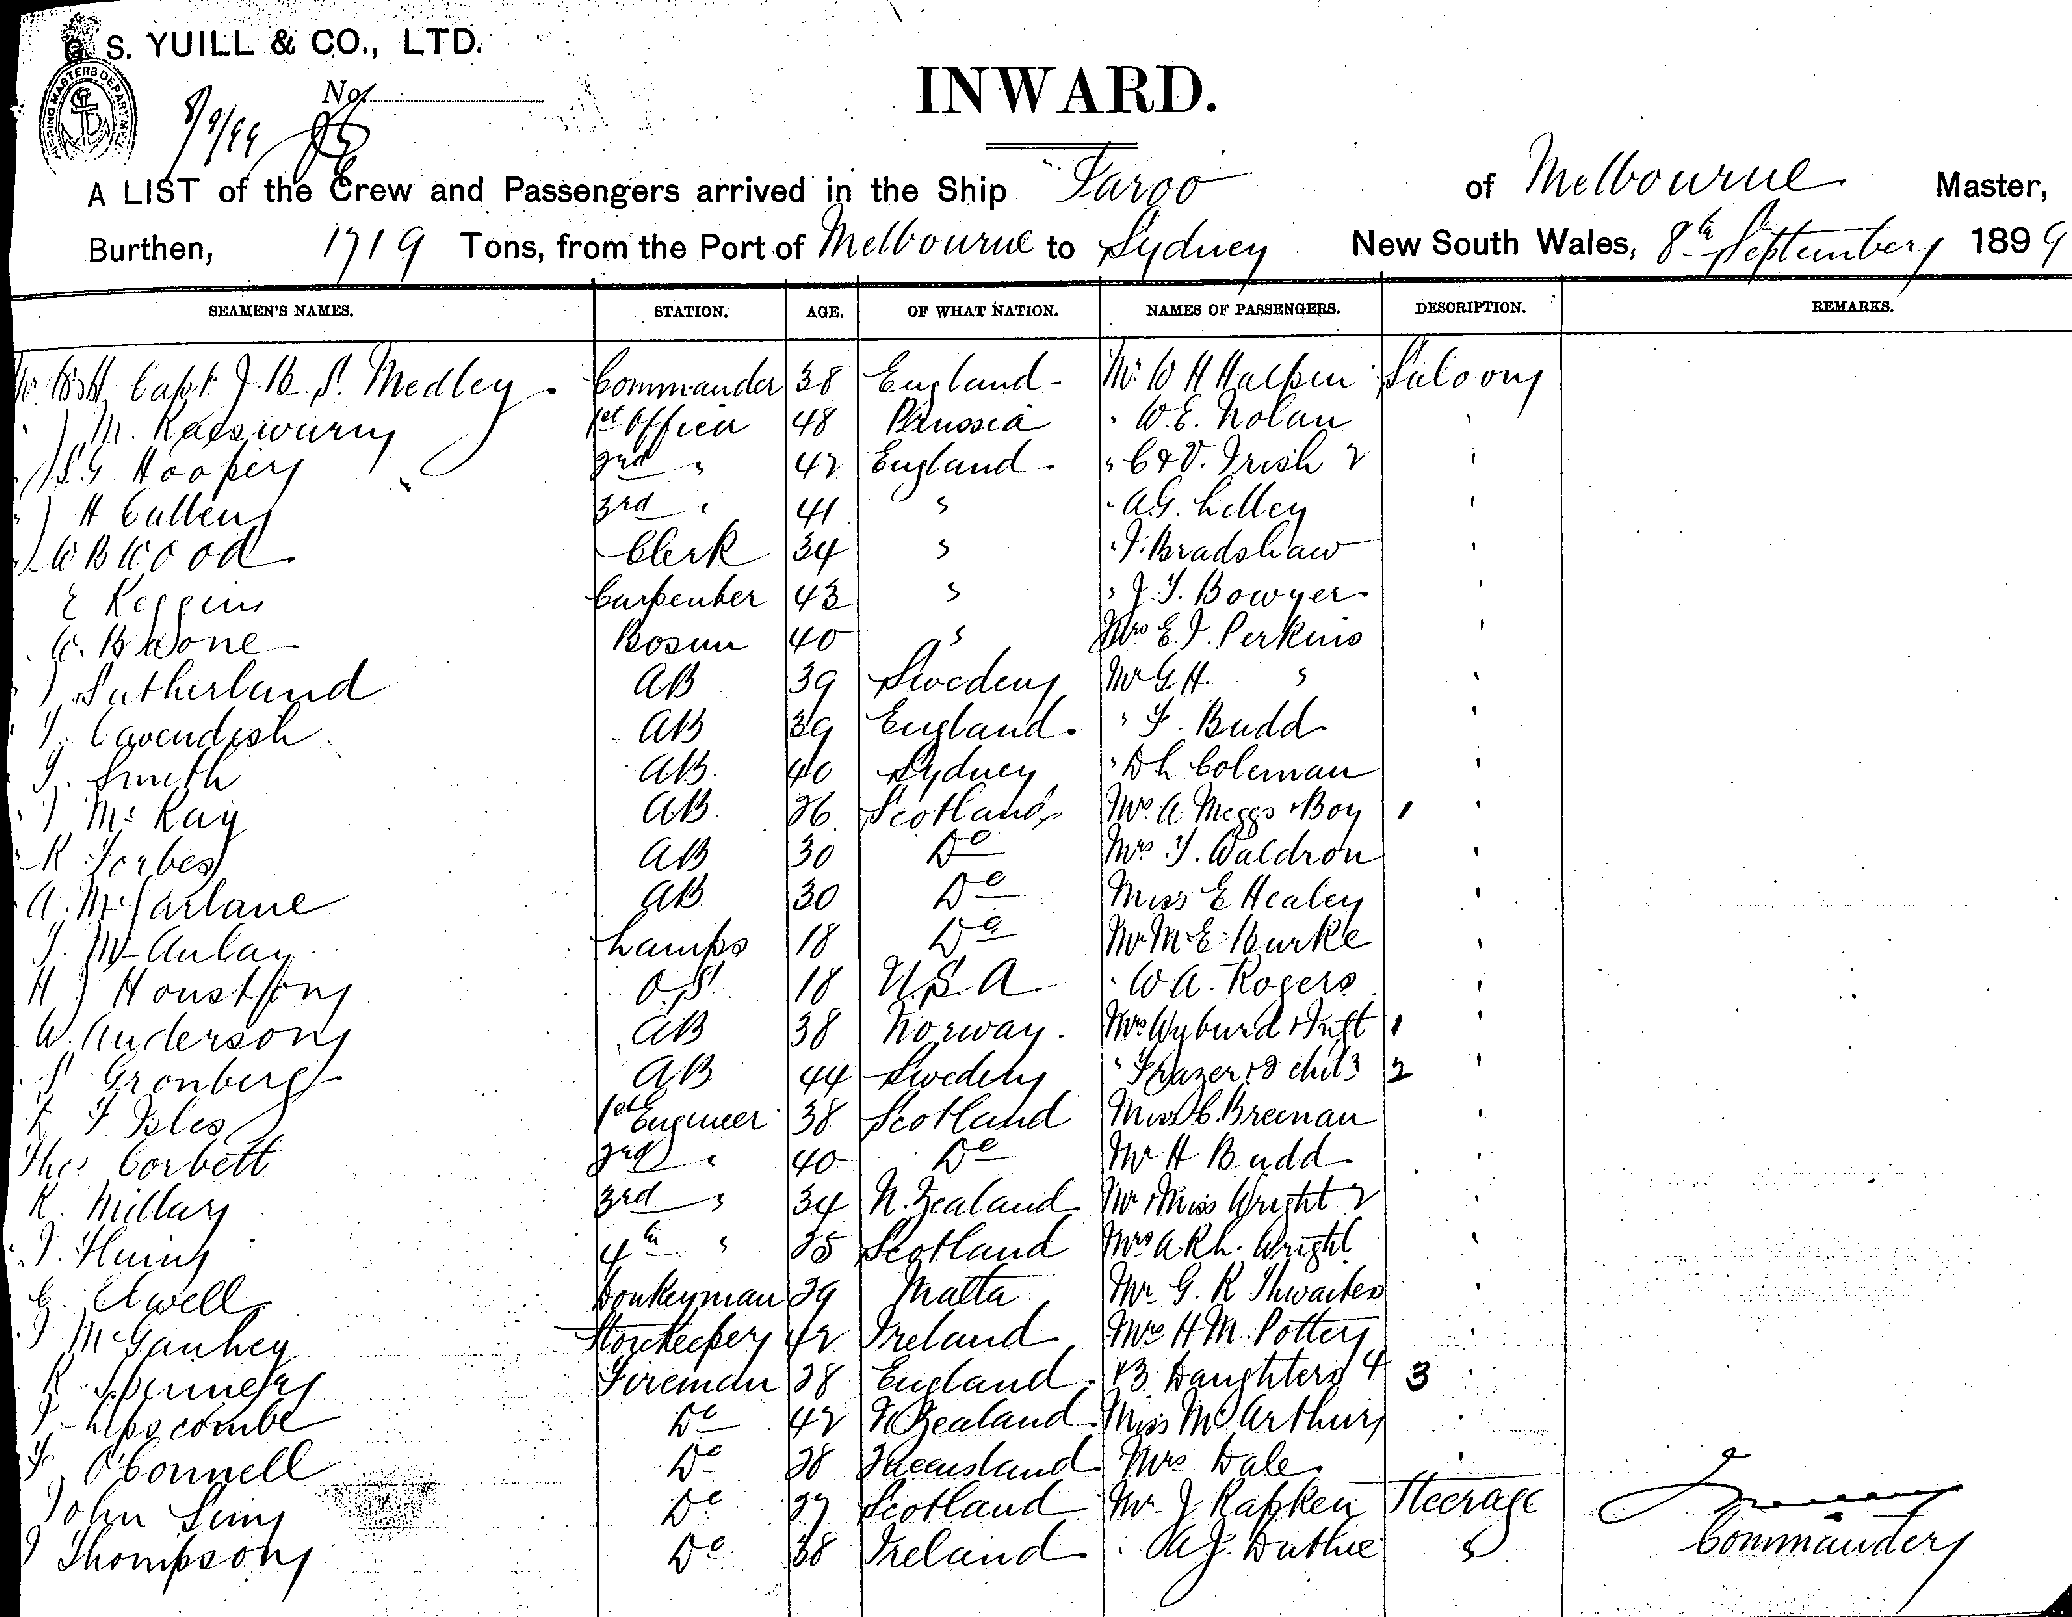 G. S. YUILL & CO., LTD.
SHIPPING MASTERS DEPARTMENT
8/9/99
No.
INWARD.
A LIST of the Crew and Passengers arrived in the Ship Taroo of Melbourne Master,
Burthen, 1719 Tons, from the Port of Melbourne to Sydney New South Wales, 8th September 1899
SEAMEN'S NAMES. STATION. AGE. OF WHAT NATION. NAMES OF PASSENGERS. DESCRIPTION. REMARKS.
Capt J. B. S. Medley Commander 38 England Mr W H Halpin Saloon
M. Raeswurm 1st Officer 48 Prussia " W. E. Nolan "
S G Hooper 2nd " 42 England " C & V. Irish 2 "
H Cullen 3rd " 41 " " A G. Lilley "
W B Wood Clerk 34 " " J. Bradshaw "
E Keggin Carpenter 43 " " J. T. Bowyer "
W. B Wone Bosun 40 " Mrs E. J. Perkins "
J Sutherland AB 39 Sweden Mr G H. " "
T. Cavendish AB 39 England " F. Budd "
J. Smith AB 40 Sydney " D L Coleman "
J McKay AB 26 Scotland Mrs A Meggs & Boy 1 "
R Forbes AB 30 Do Mrs T. Waldron "
A. McFarlane AB 30 Do Miss E Healey "
J. McAulay Lamps 18 Do Mr M E Burke "
H J Houston O.S. 18 U.S.A " W A. Rogers "
W. Anderson AB 38 Norway Mrs Wyburd & Inft 1 "
S Gronberg AB 44 Sweden " Frazer & 2 child 3 2 "
F Isles 1st Engineer 38 Scotland Miss C. Brennan "
Thos Corbett 2nd " 40 Do Mr H Budd "
R. Millar 3rd " 34 N. Zealand Mr & Miss Wright 2 "
J. Fluin 4th " 25 Scotland Mrs A R h. Wright "
G. Elwell Donkeyman 29 Malta Mr G. R Thwaites "
J McGauhey Storekeeper 42 Ireland Mrs H M. Potter "
R Spinney Fireman 28 England & 3 Daughters 4 3 "
J Lipscombe Do 42 N Zealand Miss McArthur "
F O'Connell Do 28 Queensland Mrs Dale "
John Sim Do 27 Scotland Mr J Rapken Steerage
J Thompson Do 38 Ireland " A J. Duthie "
Commander